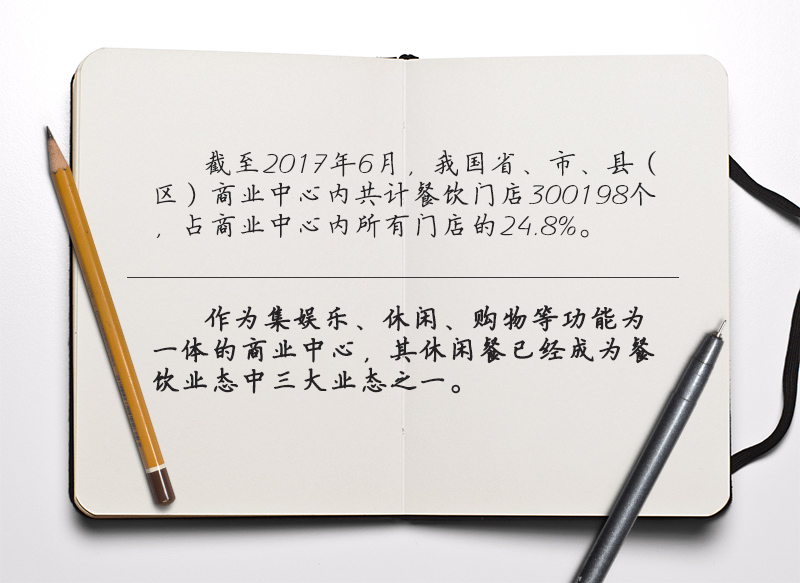 截至2017年6月，我国省、市、县（
区）商业中心内共计餐饮门店300198个
，占商业中心内所有门店的24.8%。
作为集娱乐、休闲、购物等功能为
一体的商业中心，其休闲餐已经成为餐
饮业态中三大业态之一。